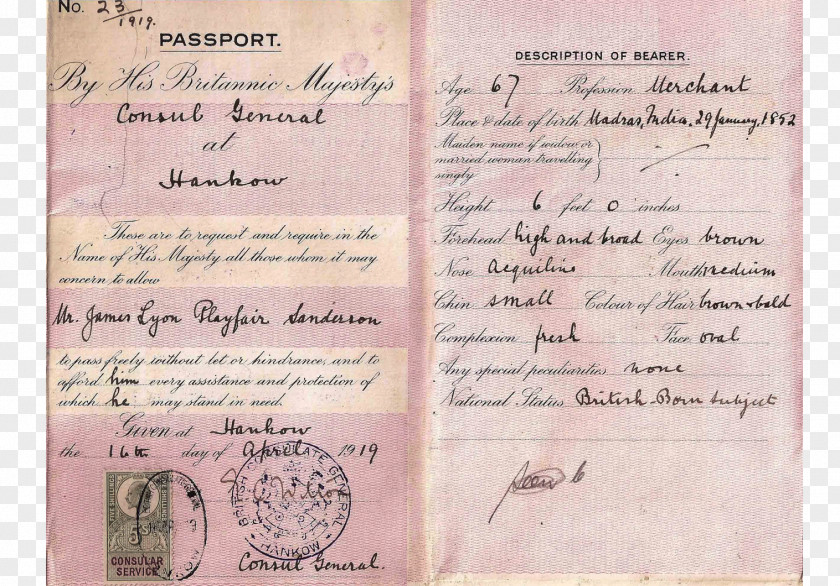 No. 23/1919.
PASSPORT.
By His Britannic Majesty's
Consul General
at
Hankow
These are to request and require in the
Name of His Majesty all those whom it may
concern to allow
Mr. James Lyon Playfair Sanderson
to pass freely without let or hindrance, and to
afford him every assistance and protection of
which he may stand in need.
Given at Hankow
the 16th day of April 1919
BRITISH CONSULATE GENERAL
HANKOW
Consul General.
FIVE SHILLINGS
5/-
CONSULAR
SERVICE
DESCRIPTION OF BEARER.
Age 67 Profession Merchant
Place & date of birth Madras, India, 29 January, 1852
Maiden name if widow or
married woman travelling
singly
Height 6 feet 0 inches
Forehead high and broad Eyes brown
Nose Acquiline Mouth medium
Chin small Colour of Hair brown & bald
Complexion fresh Face oval
Any special peculiarities none
National Status British-Born subject